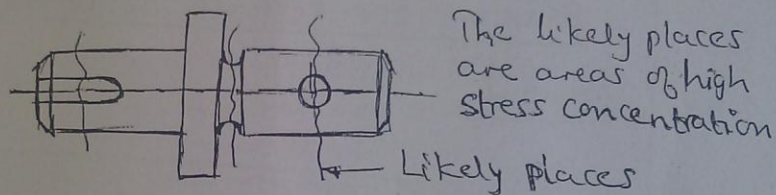 The likely places
are areas of high
stress concentration
Likely places